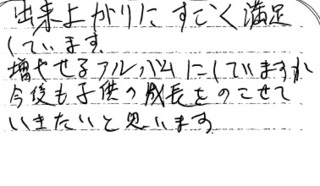 出来上がりにすごく満足
しています。
増やせるアルバムにしていますが
今後も子供の成長をのこせて
いきたいと思います